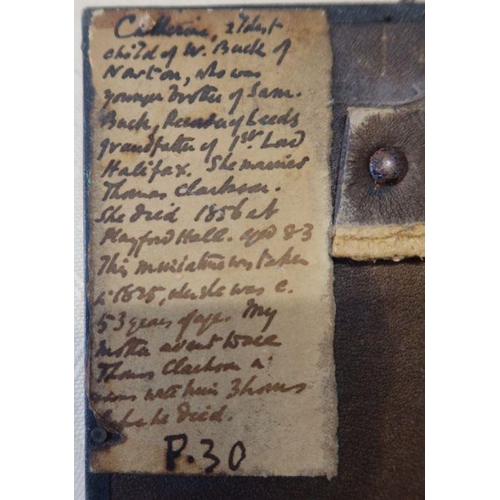 Catherine, eldest
child of W. Buck of
Nowton, who was
younger brother of Sam.
Buck, Recorder of Leeds
grandfather of 1st Lord
Halifax. She married
Thomas Clarkson.
She died 1856 at
Playford Hall. aged 83
This miniature was taken
in 1825, when she was c.
53 years of age. My
mother went to see
Thomas Clarkson &
was with him 3 hours
before he died.
P.30